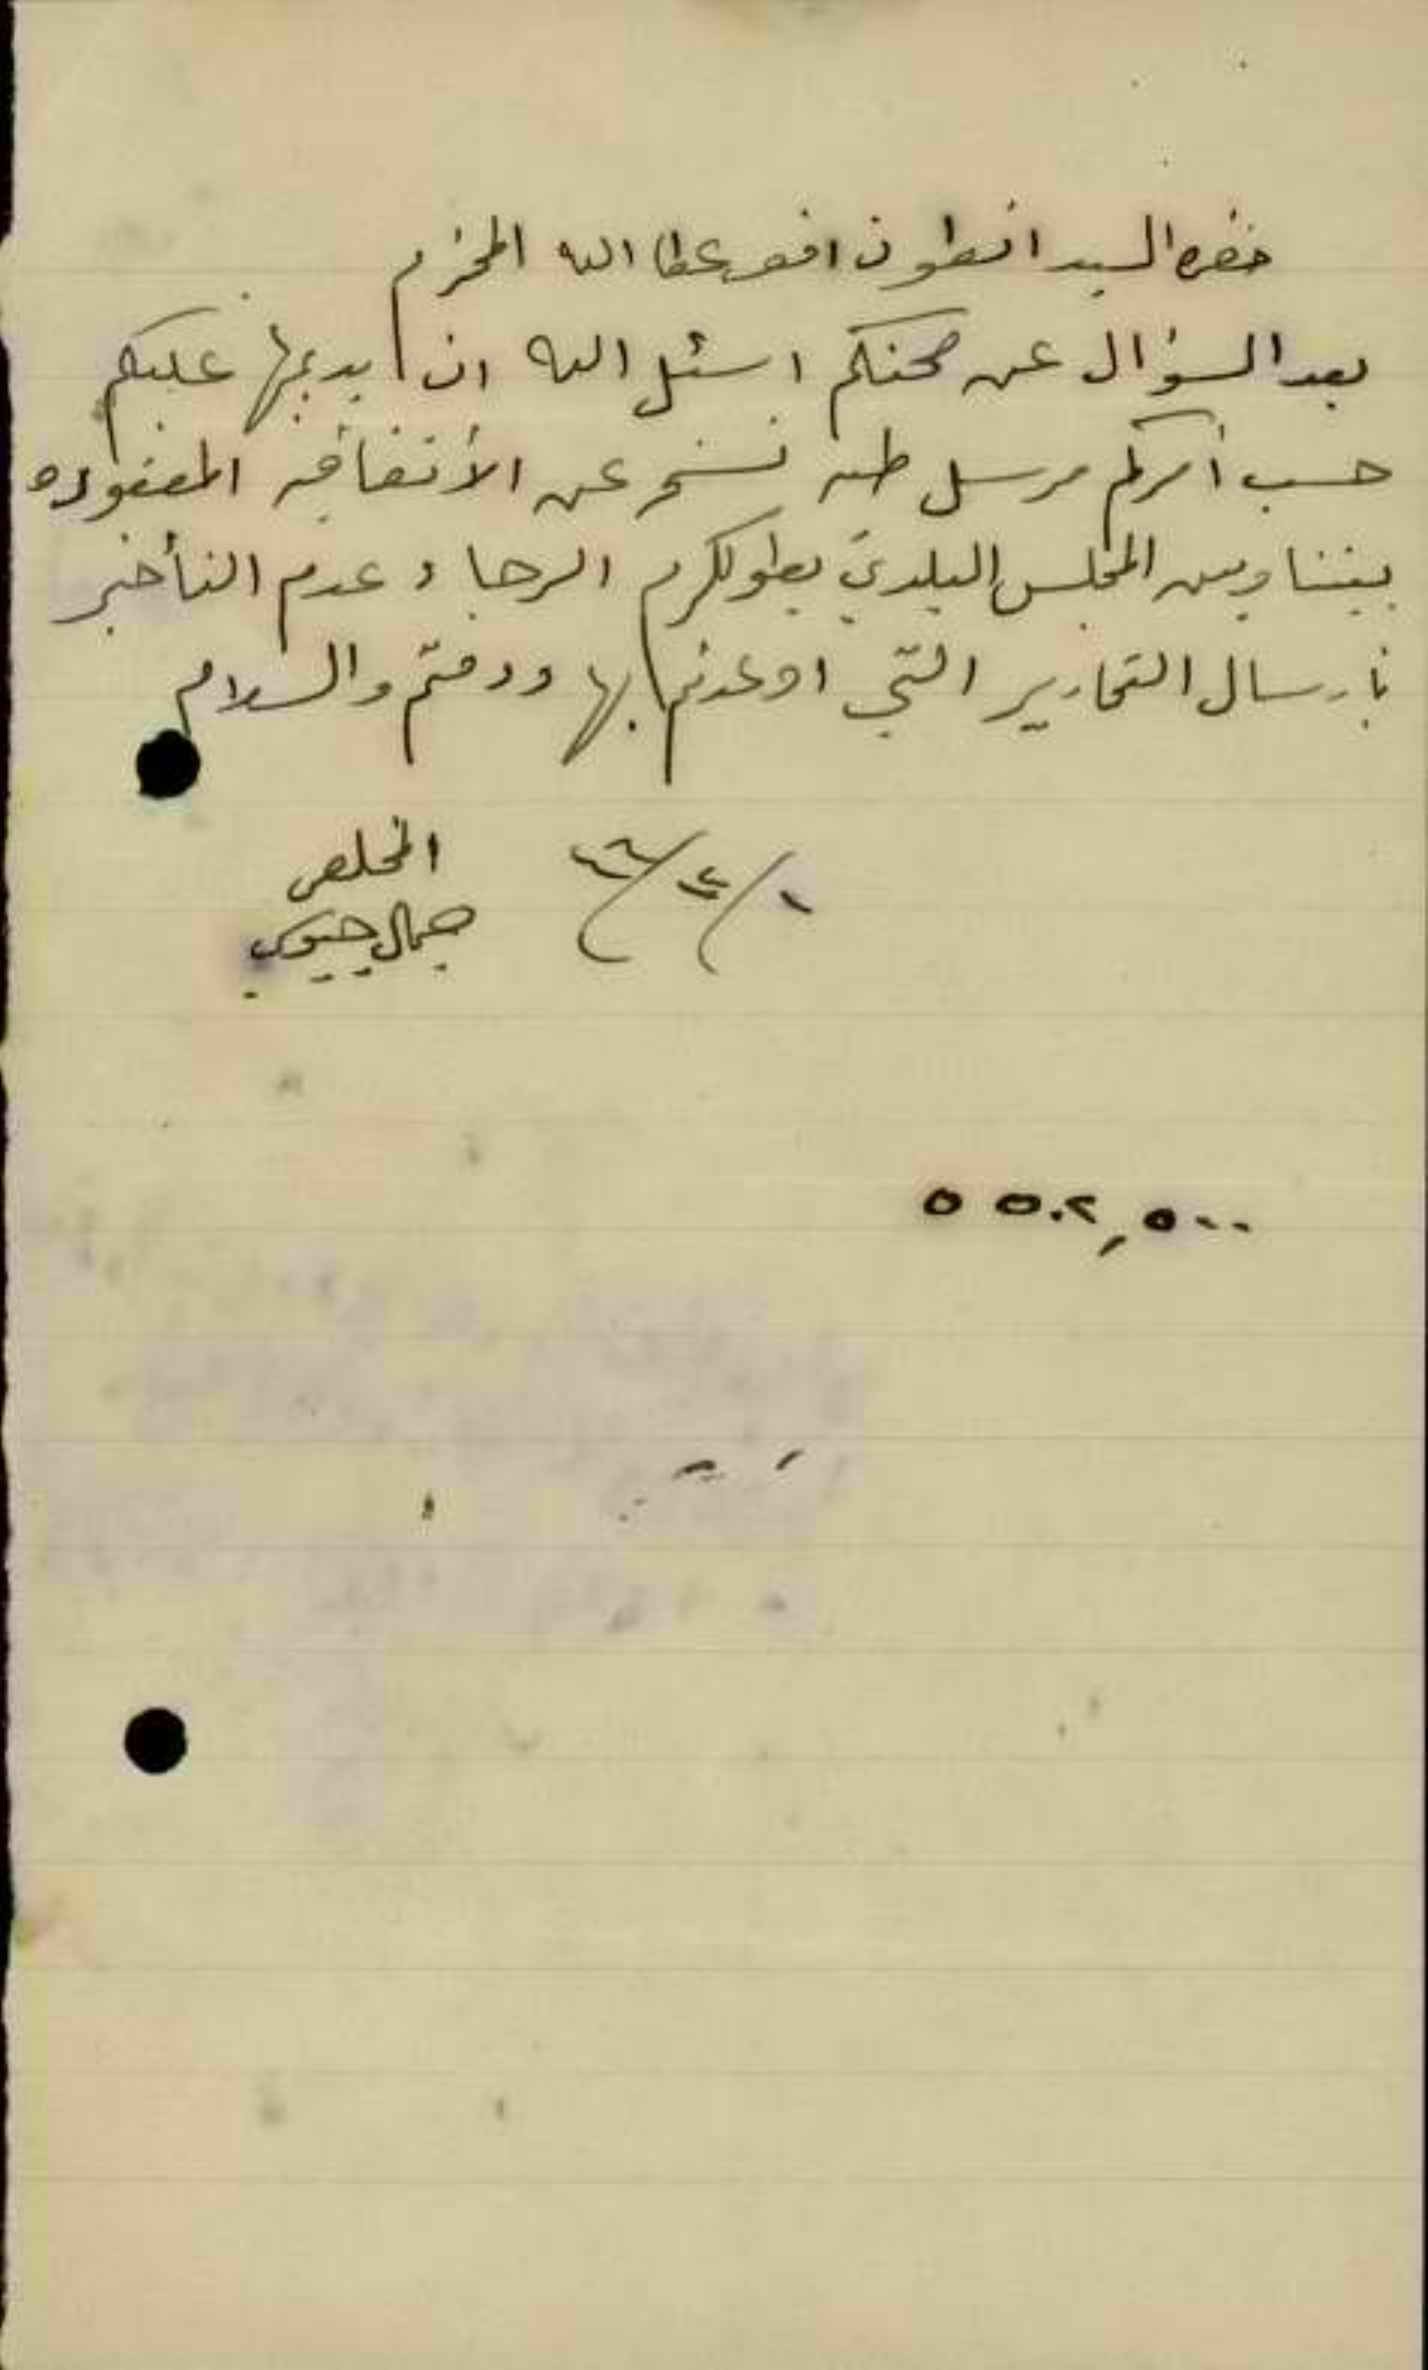 حضرة السيد انطون افندي عطا الله المحترم
بعد السؤال عن صحتكم اسئل الله ان يديمها عليكم
حسب أمركم مرسل طيه نسخه عن الأتفاقيه المعقوده
بيننا وبين المجلس البلدي بطولكرم الرجاء عدم التأخير
بارسال التحارير التي اوعدتم بها ودمتم والسلام
المخلص
جمال
٥ ٥٠٢,٥٠٠